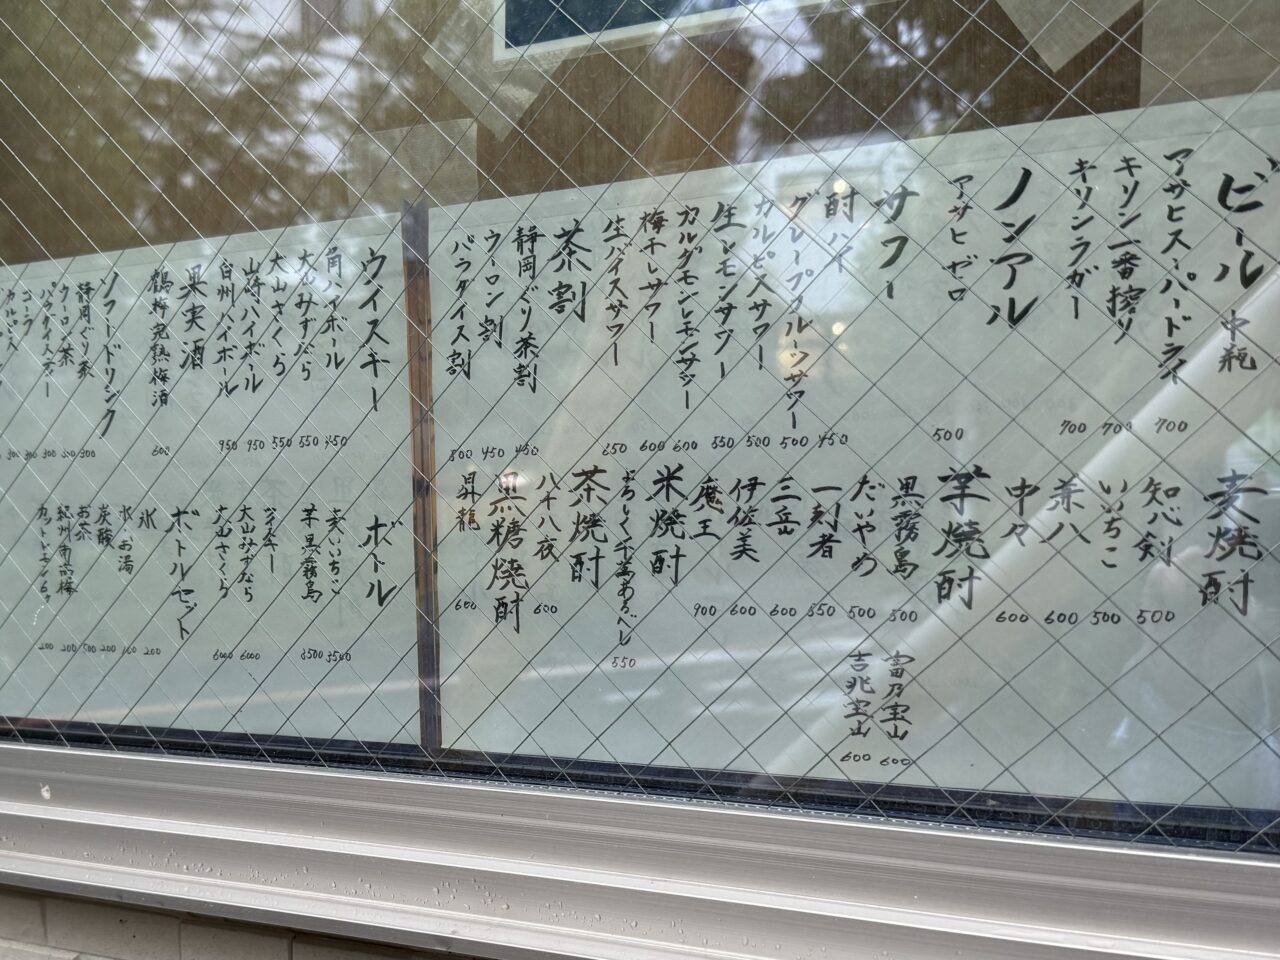 ビール 中瓶
アサヒスーパードライ 700
キリン一番搾り 700
キリンラガー 700
ノンアル
アサヒゼロ 500
サワー
酎ハイ 450
グレープフルーツサワー 500
カルピスサワー 500
生レモンサワー 550
カルグモンレモンサワー 600
梅干しサワー 600
生バイスサワー 650
茶割
静岡ぐり茶割 450
ウーロン割 450
パラダイス割 500
麦焼酎
知心剣 500
いいちこ 500
兼八 600
中々 600
芋焼酎
黒霧島 500
富乃宝山 600
だいやめ 500
吉兆宝山 600
一刻者 550
三岳 600
伊佐美 600
魔王 900
米焼酎
よろしく千萬あるべし 550
茶焼酎
八十八夜 600
黒糖焼酎
昇龍 600
ウイスキー
角ハイボール 450
大山みずなら 550
大山さくら 550
山崎ハイボール 950
白州ハイボール 950
果実酒
鶴梅完熟梅酒 600
ソフトドリンク
静岡ぐり茶 300
ウーロン茶
パラダイスティー 300
コーラ 300
カルピス 300
ボトル
麦いいちこ 3500
芋黒霧島 3500
大山みずなら 6000
大山さくら 6000
ボトルセット
氷 200
水お湯
炭酸 200
お茶 500
紀州南高梅 200
カットレモン 200